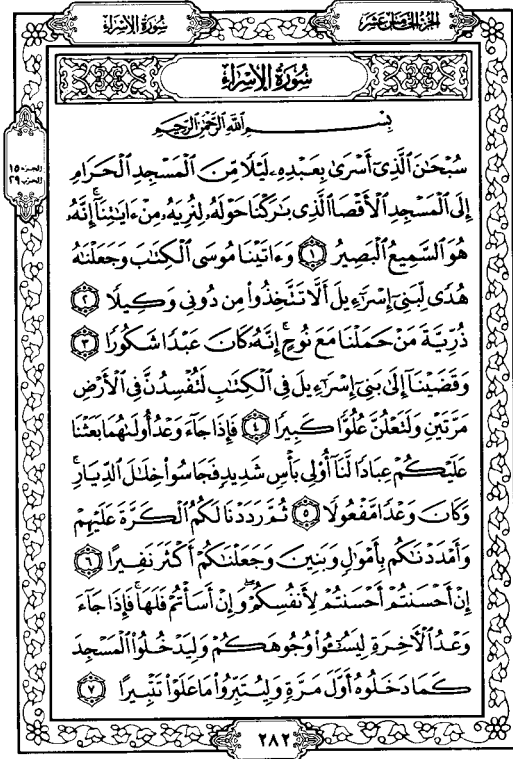 الجزء الخامس عشر
سورة الإسراء
الجزء ١٥
الحزب ٢٩
سُورَةُ الإِسْرَاءِ
بِسْمِ ٱللَّهِ ٱلرَّحْمَٰنِ ٱلرَّحِيمِ
سُبْحَٰنَ ٱلَّذِىٓ أَسْرَىٰ بِعَبْدِهِۦ لَيْلًا مِّنَ ٱلْمَسْجِدِ ٱلْحَرَامِ
إِلَى ٱلْمَسْجِدِ ٱلْأَقْصَا ٱلَّذِى بَٰرَكْنَا حَوْلَهُۥ لِنُرِيَهُۥ مِنْ ءَايَٰتِنَآ ۚ إِنَّهُۥ
هُوَ ٱلسَّمِيعُ ٱلْبَصِيرُ ١ وَءَاتَيْنَا مُوسَى ٱلْكِتَٰبَ وَجَعَلْنَٰهُ
هُدًى لِّبَنِىٓ إِسْرَٰٓءِيلَ أَلَّا تَتَّخِذُوا۟ مِن دُونِى وَكِيلًا ٢
ذُرِّيَّةَ مَنْ حَمَلْنَا مَعَ نُوحٍ ۚ إِنَّهُۥ كَانَ عَبْدًا شَكُورًا ٣
وَقَضَيْنَآ إِلَىٰ بَنِىٓ إِسْرَٰٓءِيلَ فِى ٱلْكِتَٰبِ لَتُفْسِدُنَّ فِى ٱلْأَرْضِ
مَرَّتَيْنِ وَلَتَعْلُنَّ عُلُوًّا كَبِيرًا ٤ فَإِذَا جَآءَ وَعْدُ أُولَىٰهُمَا بَعَثْنَا
عَلَيْكُمْ عِبَادًا لَّنَآ أُو۟لِى بَأْسٍ شَدِيدٍ فَجَاسُوا۟ خِلَٰلَ ٱلدِّيَارِ ۚ
وَكَانَ وَعْدًا مَّفْعُولًا ٥ ثُمَّ رَدَدْنَا لَكُمُ ٱلْكَرَّةَ عَلَيْهِمْ
وَأَمْدَدْنَٰكُم بِأَمْوَٰلٍ وَبَنِينَ وَجَعَلْنَٰكُمْ أَكْثَرَ نَفِيرًا ٦
إِنْ أَحْسَنتُمْ أَحْسَنتُمْ لِأَنفُسِكُمْ ۖ وَإِنْ أَسَأْتُمْ فَلَهَا ۚ فَإِذَا جَآءَ
وَعْدُ ٱلْءَاخِرَةِ لِيَسُۥٓـُٔوا۟ وُجُوهَكُمْ وَلِيَدْخُلُوا۟ ٱلْمَسْجِدَ
كَمَا دَخَلُوهُ أَوَّلَ مَرَّةٍ وَلِيُتَبِّرُوا۟ مَا عَلَوْا۟ تَتْبِيرًا ٧
٢٨٢